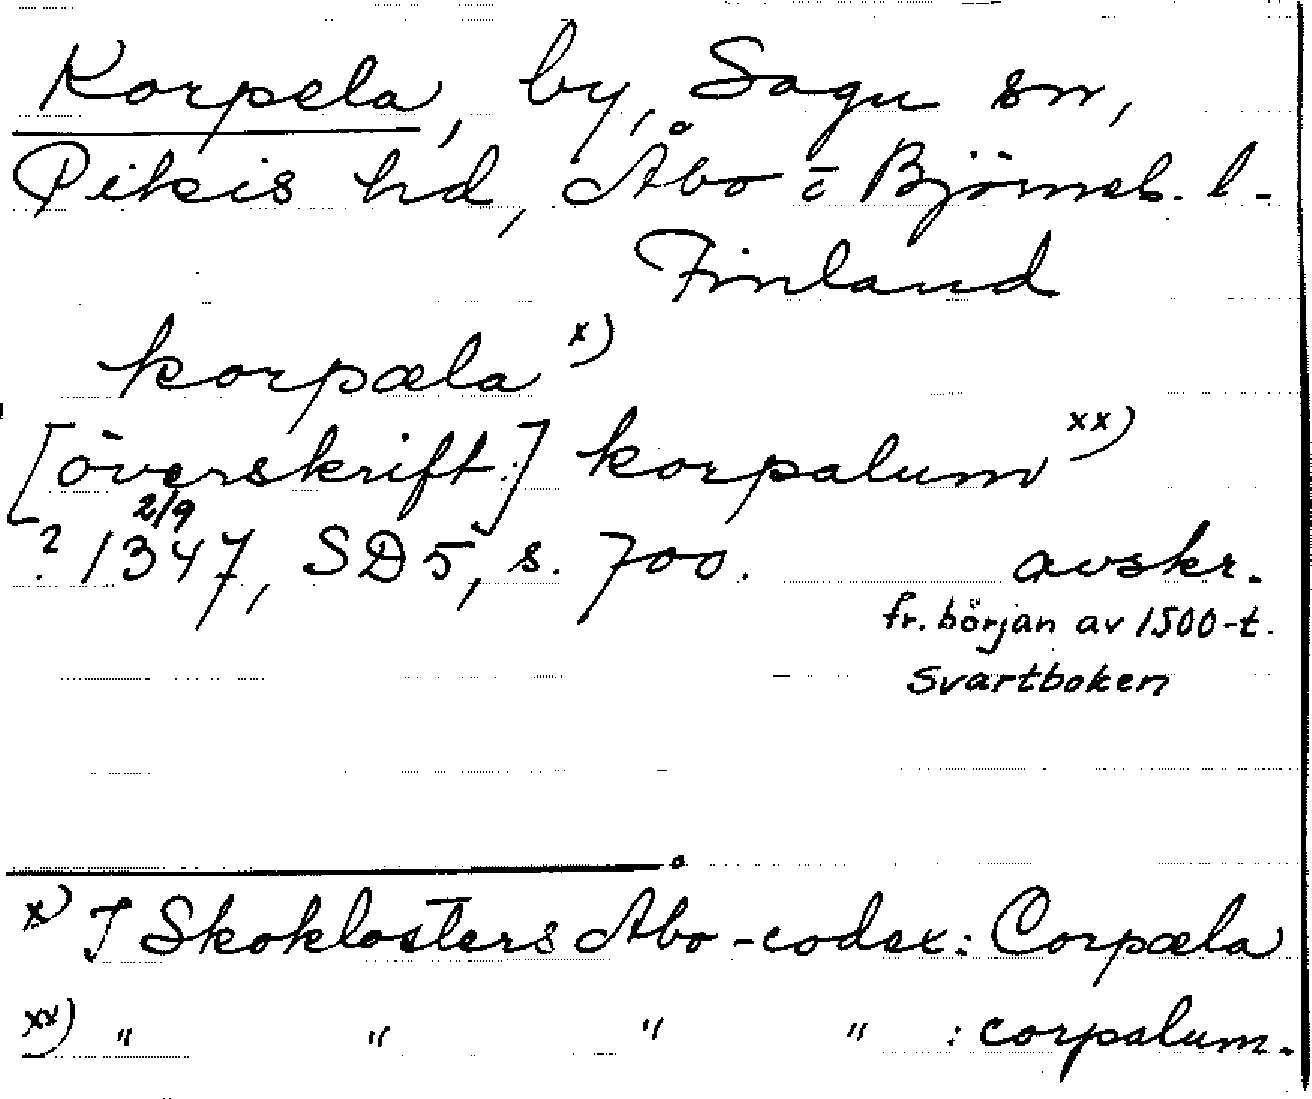 Korpela, by, Sagu sn,
Pikis hd, Åbo o Björneb. l.
Finland
korpæla x)
[överskrift:] korpalum xx)
? 1347 2/9, SD 5, s. 700. avskr.
fr. början av 1500-t.
Svartboken
x) I Skoklosters Åbo-codex: Corpæla
xx) " " " " : corpalum.